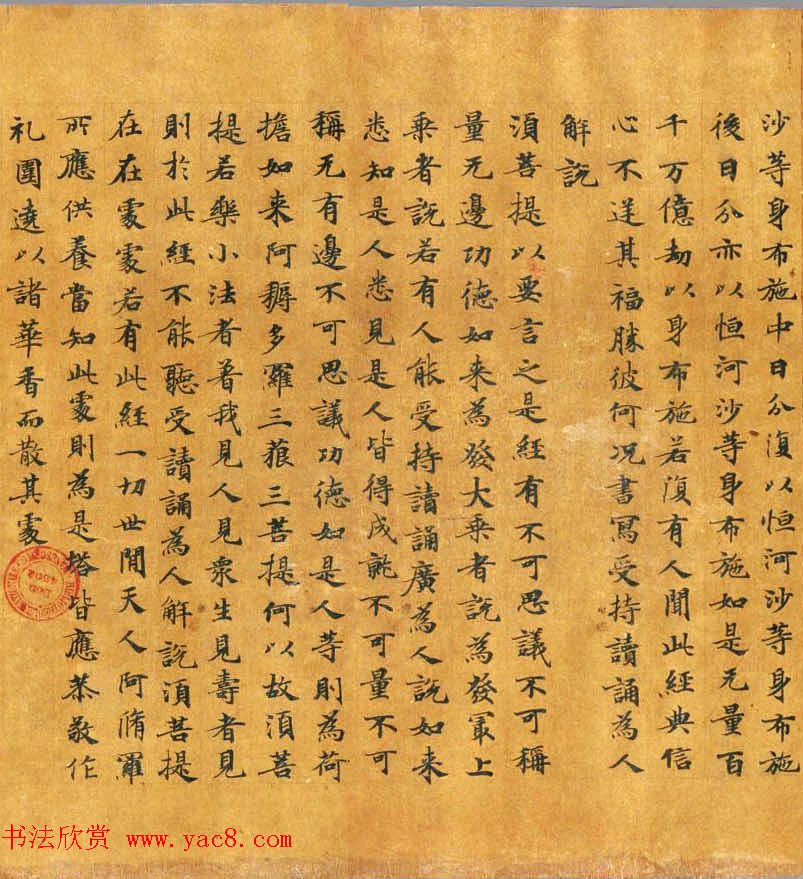 沙等身布施中日分復以恒河沙等身布施
後日分亦以恒河沙等身布施如是无量百
千万億劫以身布施若復有人聞此經典信
心不逆其福勝彼何況書寫受持讀誦為人
解說
湏菩提以要言之是經有不可思議不可稱
量无邊功德如来為發大乘者說為發㝡上
乘者說若有人能受持讀誦廣為人說如来
悉知是人悉見是人皆得成就不可量不可
稱无有邊不可思議功德如是人等則為荷
擔如来阿耨多羅三藐三菩提何以故湏菩
提若樂小法者著我見人見衆生見壽者見
則於此經不能聽受讀誦為人解說湏菩提
在在處處若有此經一切世間天人阿脩羅
所應供養當知此處則為是塔皆應恭敬作
礼圍遶以諸華香而散其處
书法欣赏 www.yac8.com